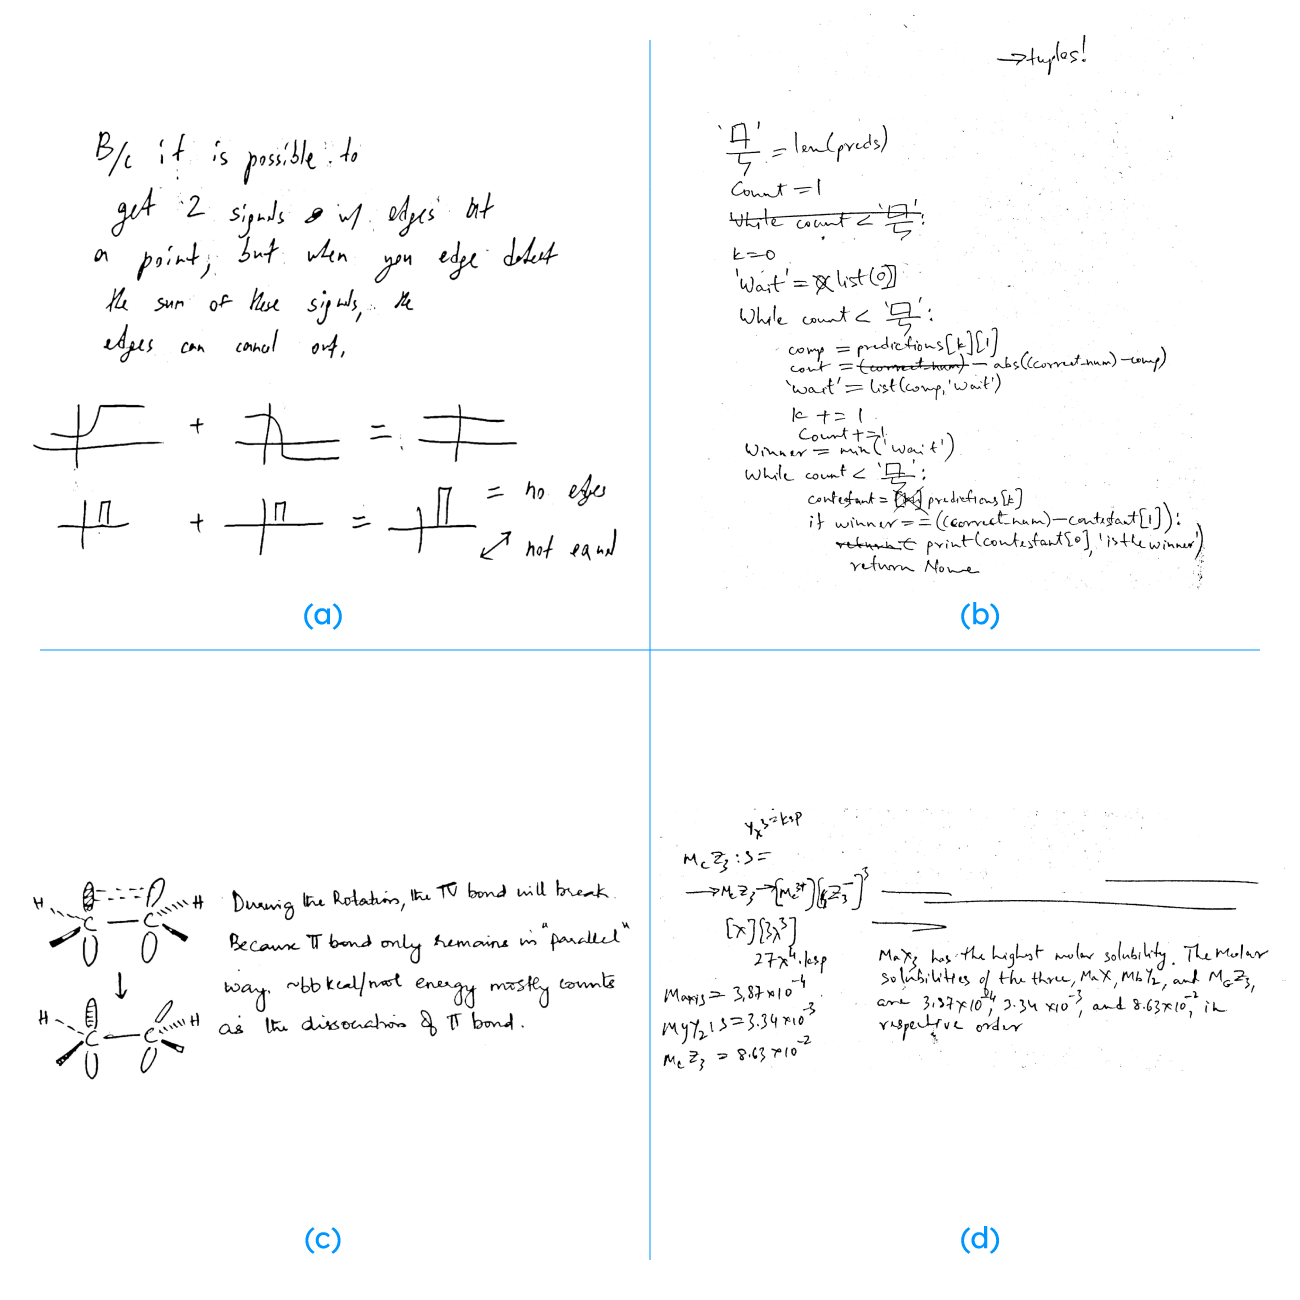 B/c it is possible to
get 2 signals w/ edges at
a point, but when you edge detect
the sum of these signals, the
edges can cancel out.
+ =
+ = = no edges
not equal
(a)
→tuples!
= len(preds)
Count = 1
While count <
k=0
'Wait' = list(0)]
While count < :
comp = predictions[k][1]
cont = (correct_num) - abs((correct_num)-comp)
'wait' = list(comp,'wait')
k += 1
Count+=1
Winner = min('wait')
While count < :
contestant = predictions[k]
if winner == ((correct_num)-contestant[1]):
print(contestant[0], 'is the winner')
return None
(b)
H C C H
During the Rotation, the π bond will break.
Because π bond only remains in "parallel"
way. ~66 kcal/mol energy mostly counts
as the dissociation of π bond.
H C C H
(c)
Yx³=ksp
McZ3 : S=
→McZ3→[Mc3+][Z3-]³
[x][3x³]
27x⁴.ksp
= 3.87×10-4
MyY2 : S=3.34×10-3
McZ3 = 8.63×10-2
MaX3 has the highest molar solubility. The molar
solubilities of the three, MaX, MbY2, and McZ3,
are 3.87×10-4, 3.34 ×10-3, and 8.63×10-2, in
respective order
(d)